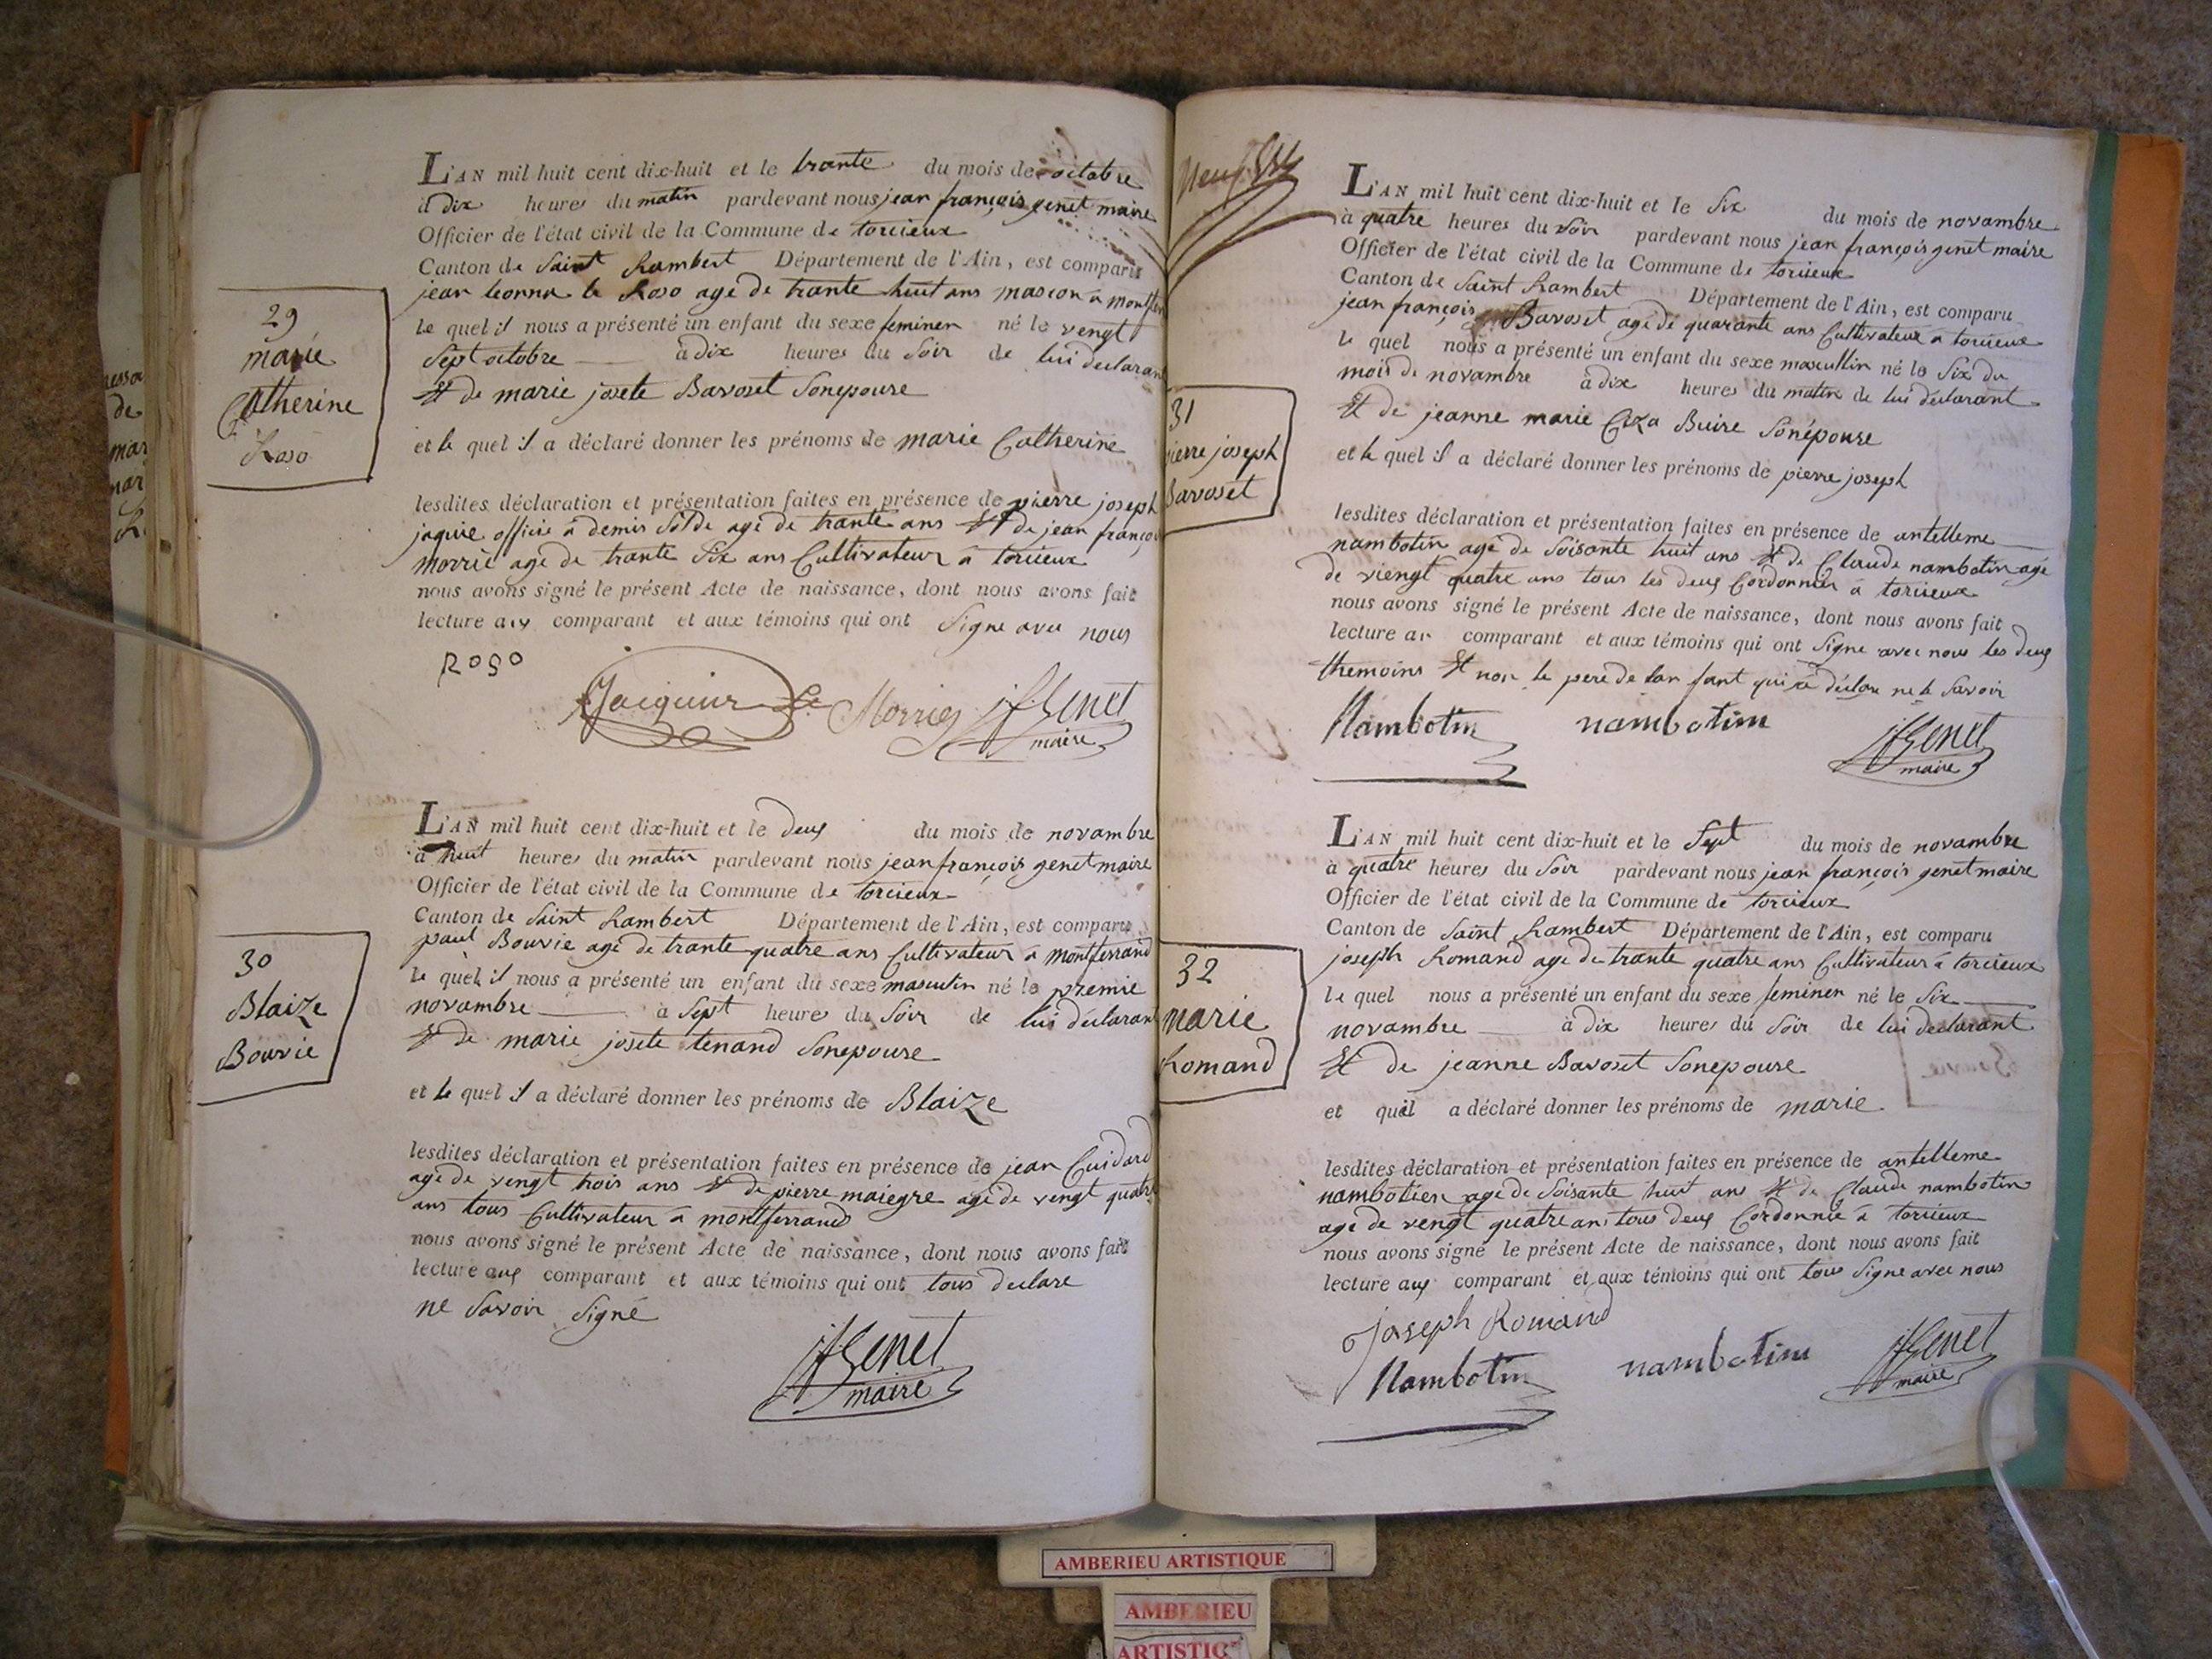 29
marie
Catherine
Roso
L'AN mil huit cent dix-huit et le trante du mois de octobre
à dix heures du matin pardevant nous jean françois genet maire
Officier de l'état civil de la Commune de torcieux
Canton de Saint Rambert Département de l'Ain, est comparu
jean leonna le Roso age de trante huit ans mascon a
le quel il nous a présenté un enfant du sexe feminen né le vengt
Sept octobre à dix heures du Soir de lui declarant
Et de marie josete Bavoset Sonepouse
et le quel il a déclaré donner les prénoms de marie Catherine
lesdites déclaration et présentation faites en présence de pierre joseph
jaquie officie a demis Solde age de trante ans Et de jean françoi
morrie age de trante Six ans Cultivateur a torcieux
nous avons signé le présent Acte de naissance, dont nous avons fait
lecture aux comparant et aux témoins qui ont Signe avec nous
Roso
Jacquier Morrier jfGenet
maire
30
Blaize
Bouvie
L'AN mil huit cent dix-huit et le deux du mois de novambre
à huit heures du matin pardevant nous jean françois genet maire
Officier de l'état civil de la Commune de torcieux
Canton de Saint Rambert Département de l'Ain, est comparu
paul Bouvie age de trante quatre ans Cultivateur a montferrand
le quel il nous a présenté un enfant du sexe masculin né le premie
novambre à Sept heures du Soir de lui déclarant
Et de marie josete tenand Sonepouse
et le quel il a déclaré donner les prénoms de Blaize
lesdites déclaration et présentation faites en présence de jean Cuidard
age de vengt trois ans Et de pierre maiegre age de vengt quatre
ans tous Cultivateur a montferrand
nous avons signé le présent Acte de naissance, dont nous avons fait
lecture aux comparant et aux témoins qui ont tous declare
ne Savoir Signé
jfGenet
maire
31
pierre joseph
Bavoset
L'AN mil huit cent dix-huit et le Six du mois de novambre
à quatre heures du Soir pardevant nous jean françois genet maire
Officier de l'état civil de la Commune de torcieux
Canton de Saint Rambert Département de l'Ain, est comparu
jean françois Bavoset age de quarante ans Cultivateur a torcieux
le quel nous a présenté un enfant du sexe masculin né le Six du
mois de novambre à dix heures du matin de lui déclarant
Et de jeanne marie Buire Sonépouse
et le quel il a déclaré donner les prénoms de pierre joseph
lesdites déclaration et présentation faites en présence de antelleme
nambotin age de Soisante huit ans Et de Claude nambotin age
de viengt quatre ans tous les deux Cordonnier a torcieux
nous avons signé le présent Acte de naissance, dont nous avons fait
lecture au comparant et aux témoins qui ont Signe avec nous les deux
themoins Et non le pere de lan fant qui a déclare ne le Savoir
Nambotin nambotim jfGenet
maire
32
marie
Romand
L'AN mil huit cent dix-huit et le Sept du mois de novambre
à quatre heures du Soir pardevant nous jean françois genet maire
Officier de l'état civil de la Commune de torcieux
Canton de Saint Rambert Département de l'Ain, est comparu
joseph Romand age de trante quatre ans Cultivateur a torcieux
le quel nous a présenté un enfant du sexe feminen né le Six
novambre à dix heures du Soir de lui declarant
Et de jeanne Bavoset Sonepouse
et quil a déclaré donner les prénoms de marie
lesdites déclaration et présentation faites en présence de antelleme
nambotien age de Soisante huit ans Et de Claude nambotin
age de vengt quatre ans tous deux Cordonnie a torcieux
nous avons signé le présent Acte de naissance, dont nous avons fait
lecture aux comparant et aux témoins qui ont tous Signe avec nous
joseph Romand
Nambotin nambotim jfGenet
maire
AMBERIEU ARTISTIQUE
AMBERIEU